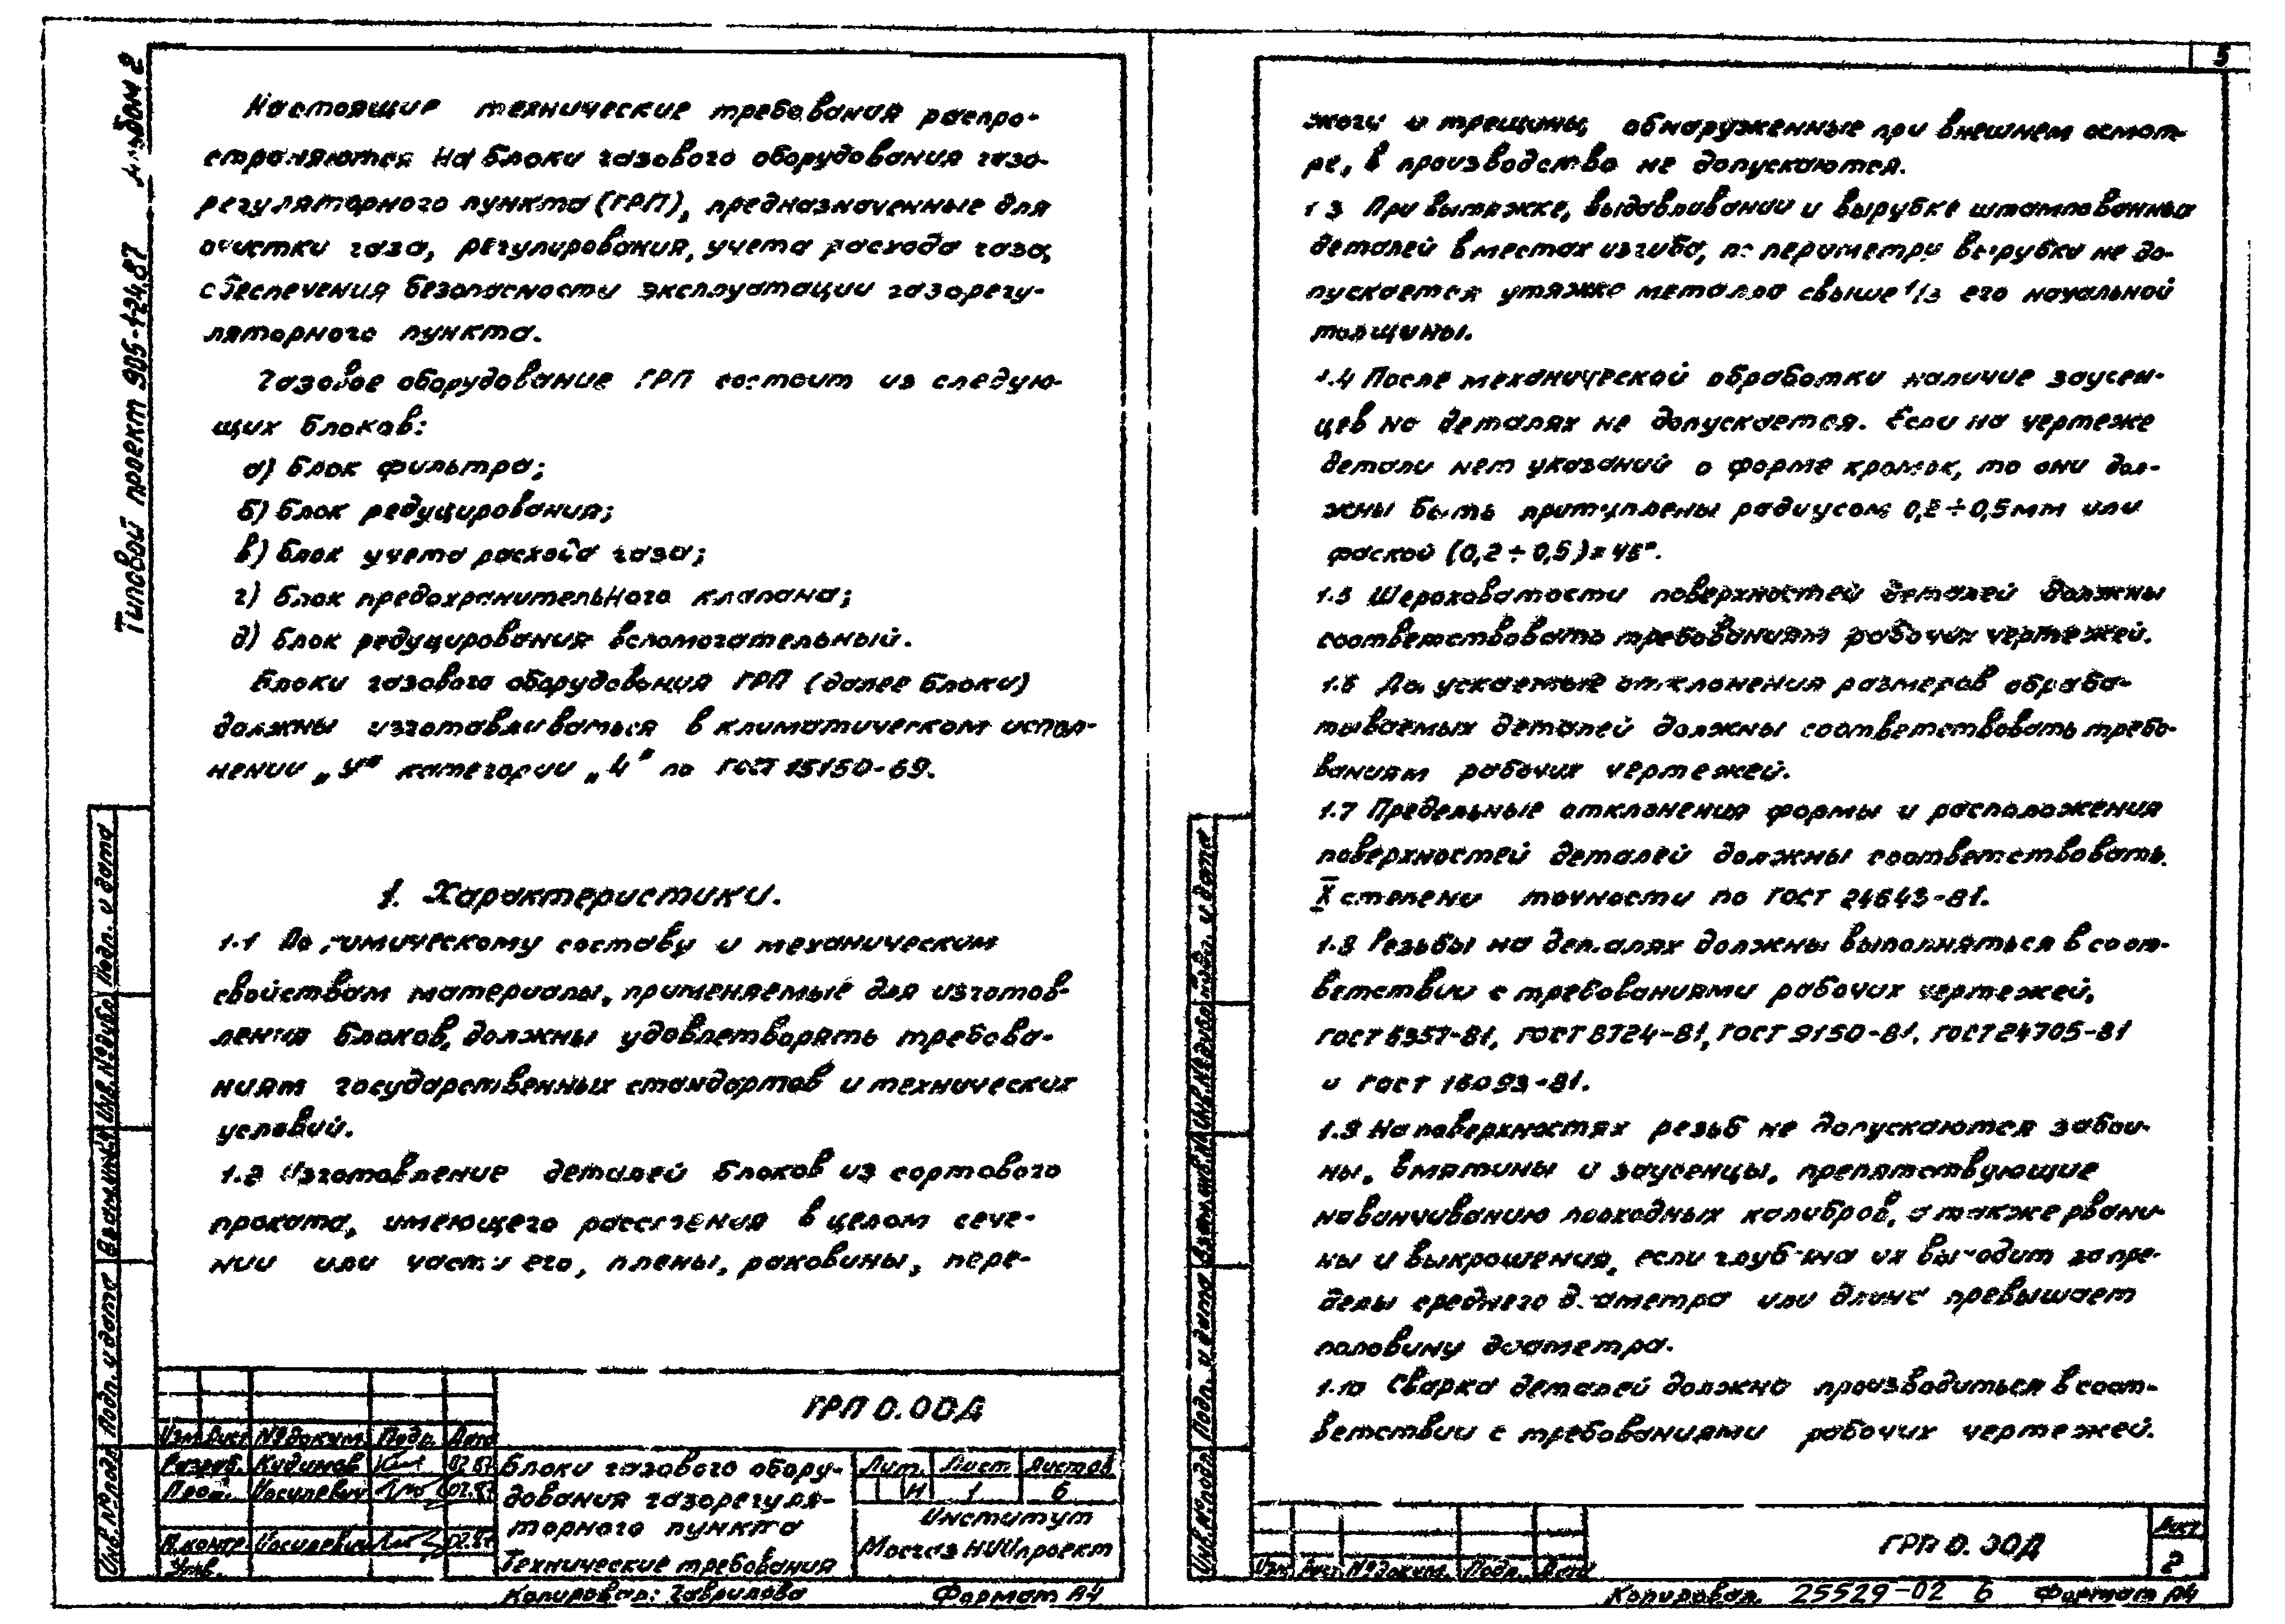 Типовой проект 905-1-24.87 Альбом 2
Настоящие технические требования распро-
страняются на блоки газового оборудования газо-
регуляторного пункта (ГРП), предназначенные для
очистки газа, регулирования, учета расхода газа,
обеспечения безопасности эксплуатации газорегу-
ляторного пункта.
Газовое оборудование ГРП состоит из следую-
щих блоков:
а) блок фильтра;
б) блок редуцирования;
в) блок учета расхода газа;
г) блок предохранительного клапана;
д) блок редуцирования вспомогательный.
Блоки газового оборудования ГРП (далее блоки)
должны изготавливаться в климатическом испол-
нении „У" категории „4" по ГОСТ 15150-69.
1. Характеристики.
1.1 По химическому составу и механическим
свойствам материалы, применяемые для изготов-
ления блоков, должны удовлетворять требова-
ниям государственных стандартов и технических
условий.
1.2 Изготовление деталей блоков из сортового
проката, имеющего расслоения в целом сече-
нии или части его, плены, раковины, пере-
Инв.№подл. Подп. и дата Взам.инв.№ Инв.№дубл. Подп. и дата
ГРП 0.00Д
Изм. Лист №докум. Подп. Дата
Разраб. Кудинов 02.87
Пров. Иосилевич 02.87
Н.контр. Иосилевич 02.87
Утв.
Блоки газового обору-
дования газорегуля-
торного пункта
Технические требования
Лит. Лист Листов
И 1 6
Институт
МосгазНИИпроект
Копировал: Гаврилова Формат А4
5
жоги и трещины, обнаруженные при внешнем осмот-
ре, в производство не допускаются.
1 3 При вытяжке, выдавливании и вырубке штампованных
деталей в местах изгиба, по периметру вырубки не до-
пускается утяжка металла свыше 1/3 его начальной
толщины.
1.4 После механической обработки наличие заусен-
цев на деталях не допускается. Если на чертеже
детали нет указаний о форме кромок, то они дол-
жны быть притуплены радиусом 0,2÷0,5мм или
фаской (0,2÷0,5)×45°.
1.5 Шероховатости поверхностей деталей должны
соответствовать требованиям рабочих чертежей.
1.6 Допускаемые отклонения размеров обраба-
тываемых деталей должны соответствовать требо-
ваниям рабочих чертежей.
1.7 Предельные отклонения формы и расположения
поверхностей деталей должны соответствовать
X степени точности по ГОСТ 24643-81.
1.8 Резьбы на деталях должны выполняться в соот-
ветствии с требованиями рабочих чертежей,
ГОСТ 6357-81, ГОСТ 8724-81, ГОСТ 9150-81, ГОСТ 24705-81
и ГОСТ 16093-81.
1.9 На поверхностях резьб не допускаются забои-
ны, вмятины и заусенцы, препятствующие
навинчиванию проходных калибров, а также рвани-
ны и выкрошения, если глубина их выходит за пре-
делы среднего диаметра или длина превышает
половину диаметра.
1.10 Сварка деталей должна производиться в соот-
ветствии с требованиями рабочих чертежей.
Инв.№подл. Подп. и дата Взам.инв.№ Инв.№дубл. Подп. и дата
ГРП 0.00Д
Лист
2
Изм. Лист №докум. Подп. Дата
Копировал. 25529-02 6 Формат А4